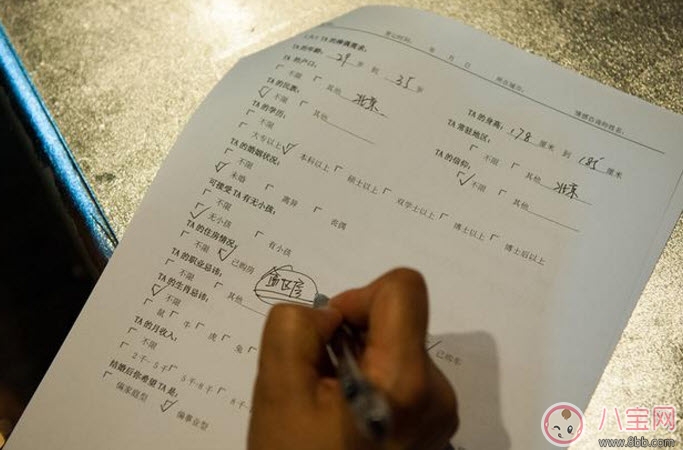 登记时间: 年 月 日 所在城市: 情感咨询师姓名:
TA的年龄: 29 岁 到 35 岁 TA的身高: 178 厘米 到 185 厘米
TA的户口: TA常驻地区:
不限 其他 北京 不限 其他 北京
TA的民族: TA的信仰:
不限 其他 不限 其他
TA的学历:
不限 大专以上 本科以上 硕士以上 双学士以上 博士以上 博士后以上
TA的婚姻状况:
不限 未婚 离异 丧偶
可接受TA有无小孩:
不限 无小孩 有小孩
TA的住房情况:
不限 已购房 已购车
TA的职业忌讳:
不限 其他
TA的生肖忌讳:
不限 鼠 牛 虎 兔
TA的月收入:
不限 2千-5千 5千-8千
结婚后你希望TA是:
偏家庭型 偏事业型
八宝网
www.8bb.com